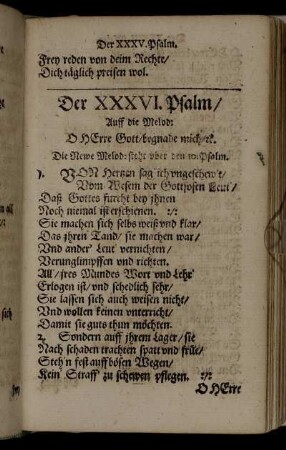 Der XXXV. Psalm.
Frey reden von deim Rechte/
Dich täglich preisen wol.
Der XXXVI. Psalm/
Auff die Melod:
O HErre Gott/ begnade mich/ ꝛc.
Die Newe Melod: steht vber den Psalm.
1. VON Hertzen sag ich vngeschewt/
Vom Wesen der Gottlosen Leut/
Daß Gottes furcht bey jhnen
Noch niemal ist erschienen. :/:
Sie machen sich selbs weiß vnd klar/
Das jhren Tand/ sie machen war/
Vnd ander' Leut' vernichten/
Verunglimpffen vnd richten.
All/ jres Mundes Wort vnd Lehr'
Erlogen ist/ vnd schedlich sehr/
Sie lassen sich auch weisen nicht/
Vnd wollen keinen vnterricht/
Damit sie guts thun möchten.
2. Sondern auff jhrem Lager/ sie
Nach schaden trachten spatt vnd früe/
Steh'n fest auff bösen Wegen/
Kein Straff' zu schewen pflegen. :/:
O HErre